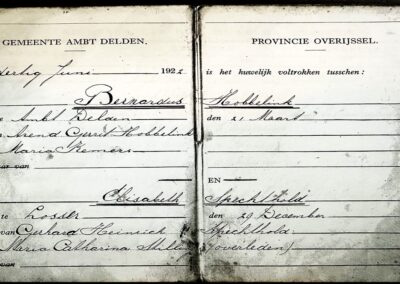 GEMEENTE AMBT DELDEN.
PROVINCIE OVERIJSSEL.
dertig Juni 1922
is het huwelijk voltrokken tusschen:
Bernardus Hobbelink
te Ambt Delden den 21 Maart
Arend Gerrit Hobbelink
Maria Kemers
van
EN
Elisabeth Spechthold
te Losser den 29 December
van Gerhard Heinrich Spechthold
Maria Catharina (overleden)
van